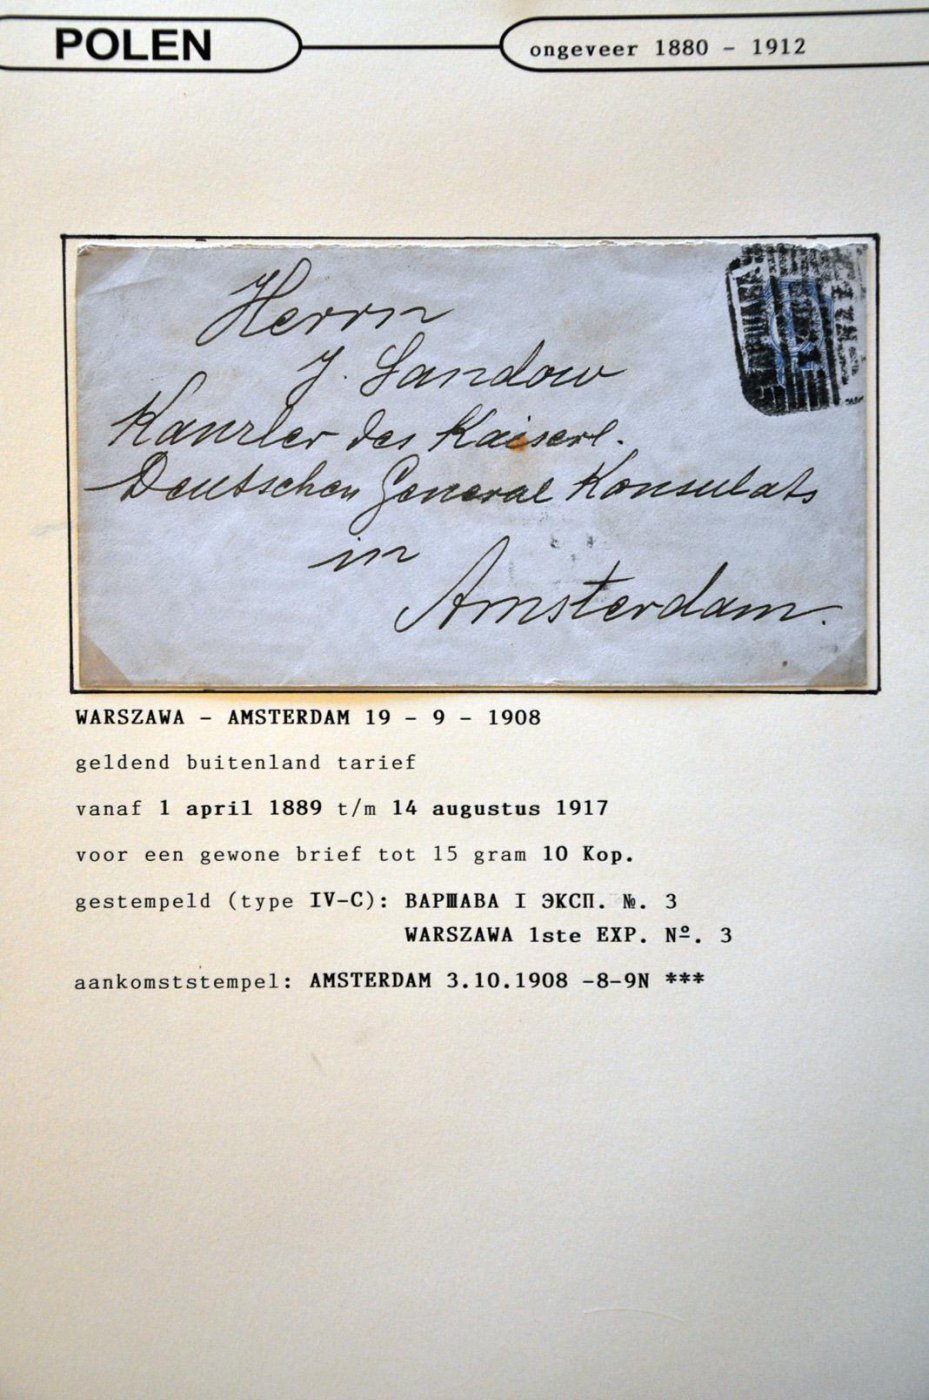 POLEN
ongeveer 1880 - 1912
Herrn
J. Sandow
Kanzler des Kaiserl.
Deutschen General Konsulats
in
Amsterdam.
ВАРШАВА
WARSZAWA - AMSTERDAM 19 - 9 - 1908
geldend buitenland tarief
vanaf 1 april 1889 t/m 14 augustus 1917
voor een gewone brief tot 15 gram 10 Kop.
gestempeld (type IV-C): ВАРШАВА I ЭКСП. №. 3
WARSZAWA 1ste EXP. Nº. 3
aankomststempel: AMSTERDAM 3.10.1908 -8-9N ***